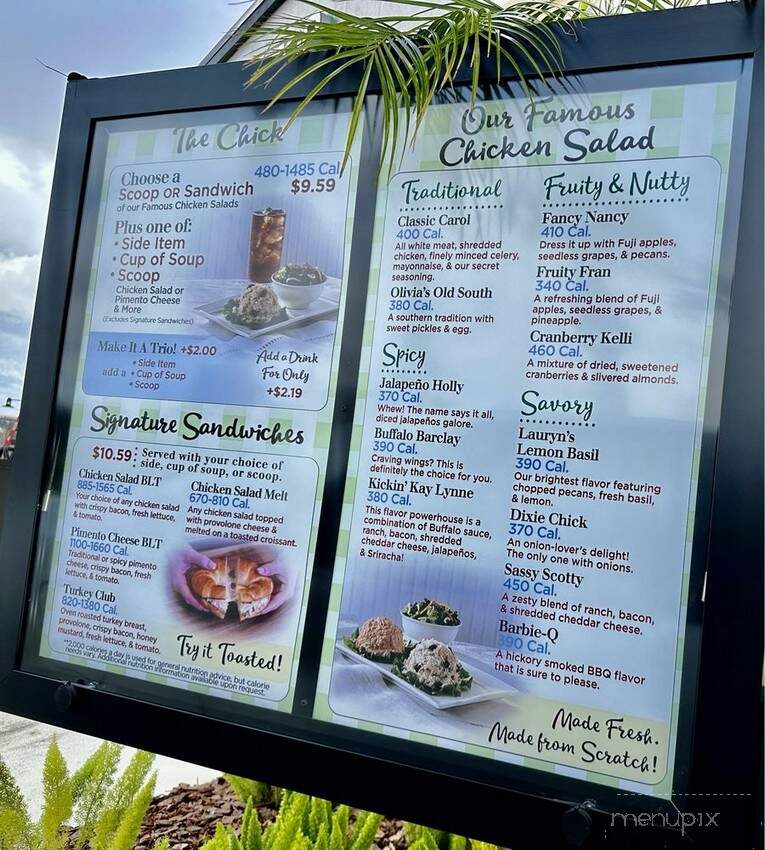 The Chick
Choose a
480-1485 Cal.
Scoop OR Sandwich
$9.59
of our Famous Chicken Salads
Plus one of:
• Side Item
• Cup of Soup
• Scoop
Chicken Salad or
Pimento Cheese
& More
(Excludes Signature Sandwiches)
Make It A Trio! +$2.00
add a
• Side Item
• Cup of Soup
• Scoop
Add a Drink
For Only
+$2.19
Signature Sandwiches
$10.59 Served with your choice of
side, cup of soup, or scoop.
Chicken Salad BLT
885-1565 Cal.
Your choice of any chicken salad
with crispy bacon, fresh lettuce,
& tomato.
Pimento Cheese BLT
1100-1660 Cal.
Traditional or spicy pimento
cheese, crispy bacon, fresh
lettuce, & tomato.
Turkey Club
820-1380 Cal.
Oven roasted turkey breast,
provolone, crispy bacon, honey
mustard, fresh lettuce, & tomato.
Chicken Salad Melt
670-810 Cal.
Any chicken salad topped
with provolone cheese &
melted on a toasted croissant.
Try it Toasted!
**2,000 calories a day is used for general nutrition advice, but calorie
needs vary. Additional nutrition information available upon request.
Our Famous
Chicken Salad
Traditional
Classic Carol
400 Cal.
All white meat, shredded
chicken, finely minced celery,
mayonnaise, & our secret
seasoning.
Olivia's Old South
380 Cal.
A southern tradition with
sweet pickles & egg.
Spicy
Jalapeño Holly
370 Cal.
Whew! The name says it all,
diced jalapeños galore.
Buffalo Barclay
390 Cal.
Craving wings? This is
definitely the choice for you.
Kickin' Kay Lynne
380 Cal.
This flavor powerhouse is a
combination of Buffalo sauce,
ranch, bacon, shredded
cheddar cheese, jalapeños,
& Sriracha!
Fruity & Nutty
Fancy Nancy
410 Cal.
Dress it up with Fuji apples,
seedless grapes, & pecans.
Fruity Fran
340 Cal.
A refreshing blend of Fuji
apples, seedless grapes, &
pineapple.
Cranberry Kelli
460 Cal.
A mixture of dried, sweetened
cranberries & slivered almonds.
Savory
Lauryn's
Lemon Basil
390 Cal.
Our brightest flavor featuring
chopped pecans, fresh basil,
& lemon.
Dixie Chick
370 Cal.
An onion-lover's delight!
The only one with onions.
Sassy Scotty
450 Cal.
A zesty blend of ranch, bacon,
& shredded cheddar cheese.
Barbie-Q
390 Cal.
A hickory smoked BBQ flavor
that is sure to please.
Made Fresh.
Made from Scratch!
menupix